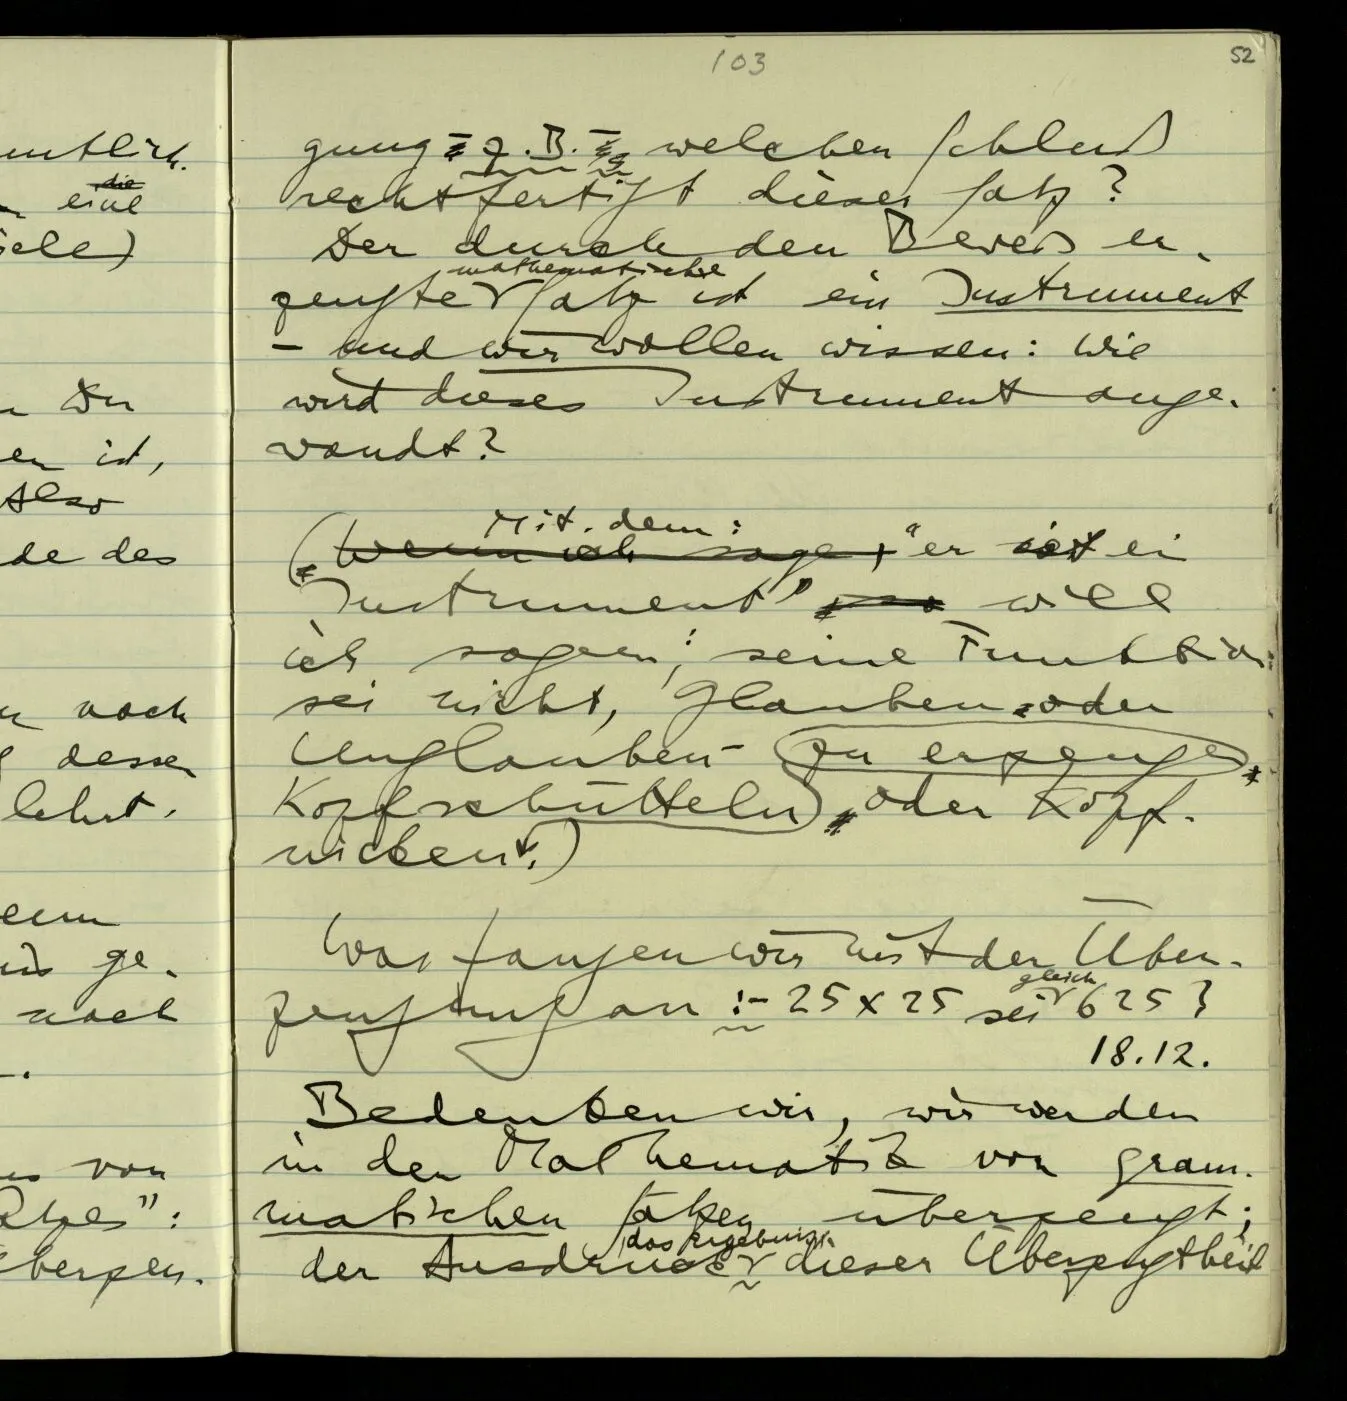 103
52
gung – z.B. – welchen Schluß
rechtfertigt dieser Satz?
Der durch den Beweis er-
mathematische
zeugte Satz ist ein Instrument
– und wir wollen wissen: Wie
wird dieses Instrument ange-
wandt?
Mit dem:
(Wenn ich sage, "er ist ein
Instrument" so will
ich sagen; seine Funktion
sei nicht, Glauben oder
Unglauben – zu erzeugen,
Kopfschütteln, oder Kopf-
nicken.)
Was fangen wir mit der Über-
gleich
zeugung an :– 25 x 25 sei 625?
18.12.
Bedenken wir, wir werden
in der Mathematik von gram-
matischen Sätzen überzeugt;
das Ergebnis
der Ausdruck dieser Überzeugtheit
die
eine
en ist,
Also
de des
noch
dessen
lehrt.
ge-
noch
von